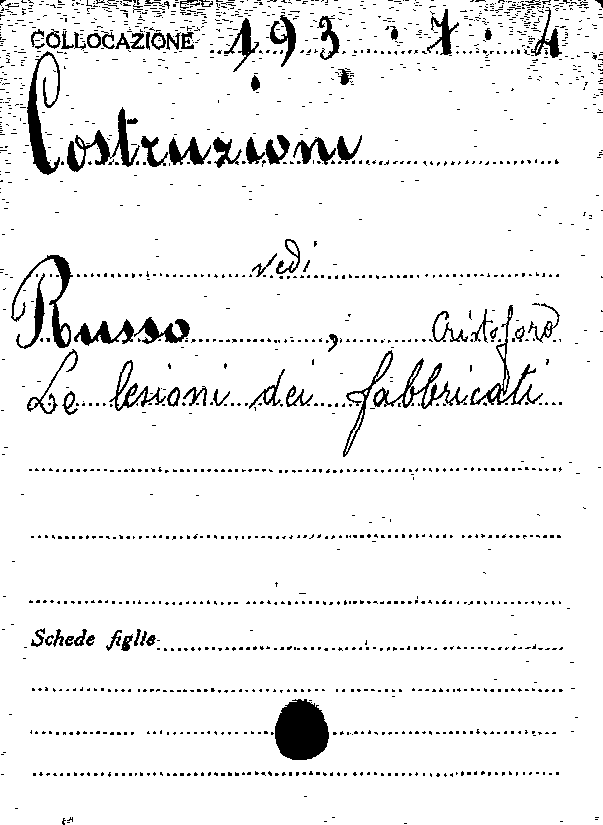 COLLOCAZIONE 193.7.4
Costruzioni
vedi
Russo, Cristoforo
Le lesioni dei fabbricati
Schede figlie